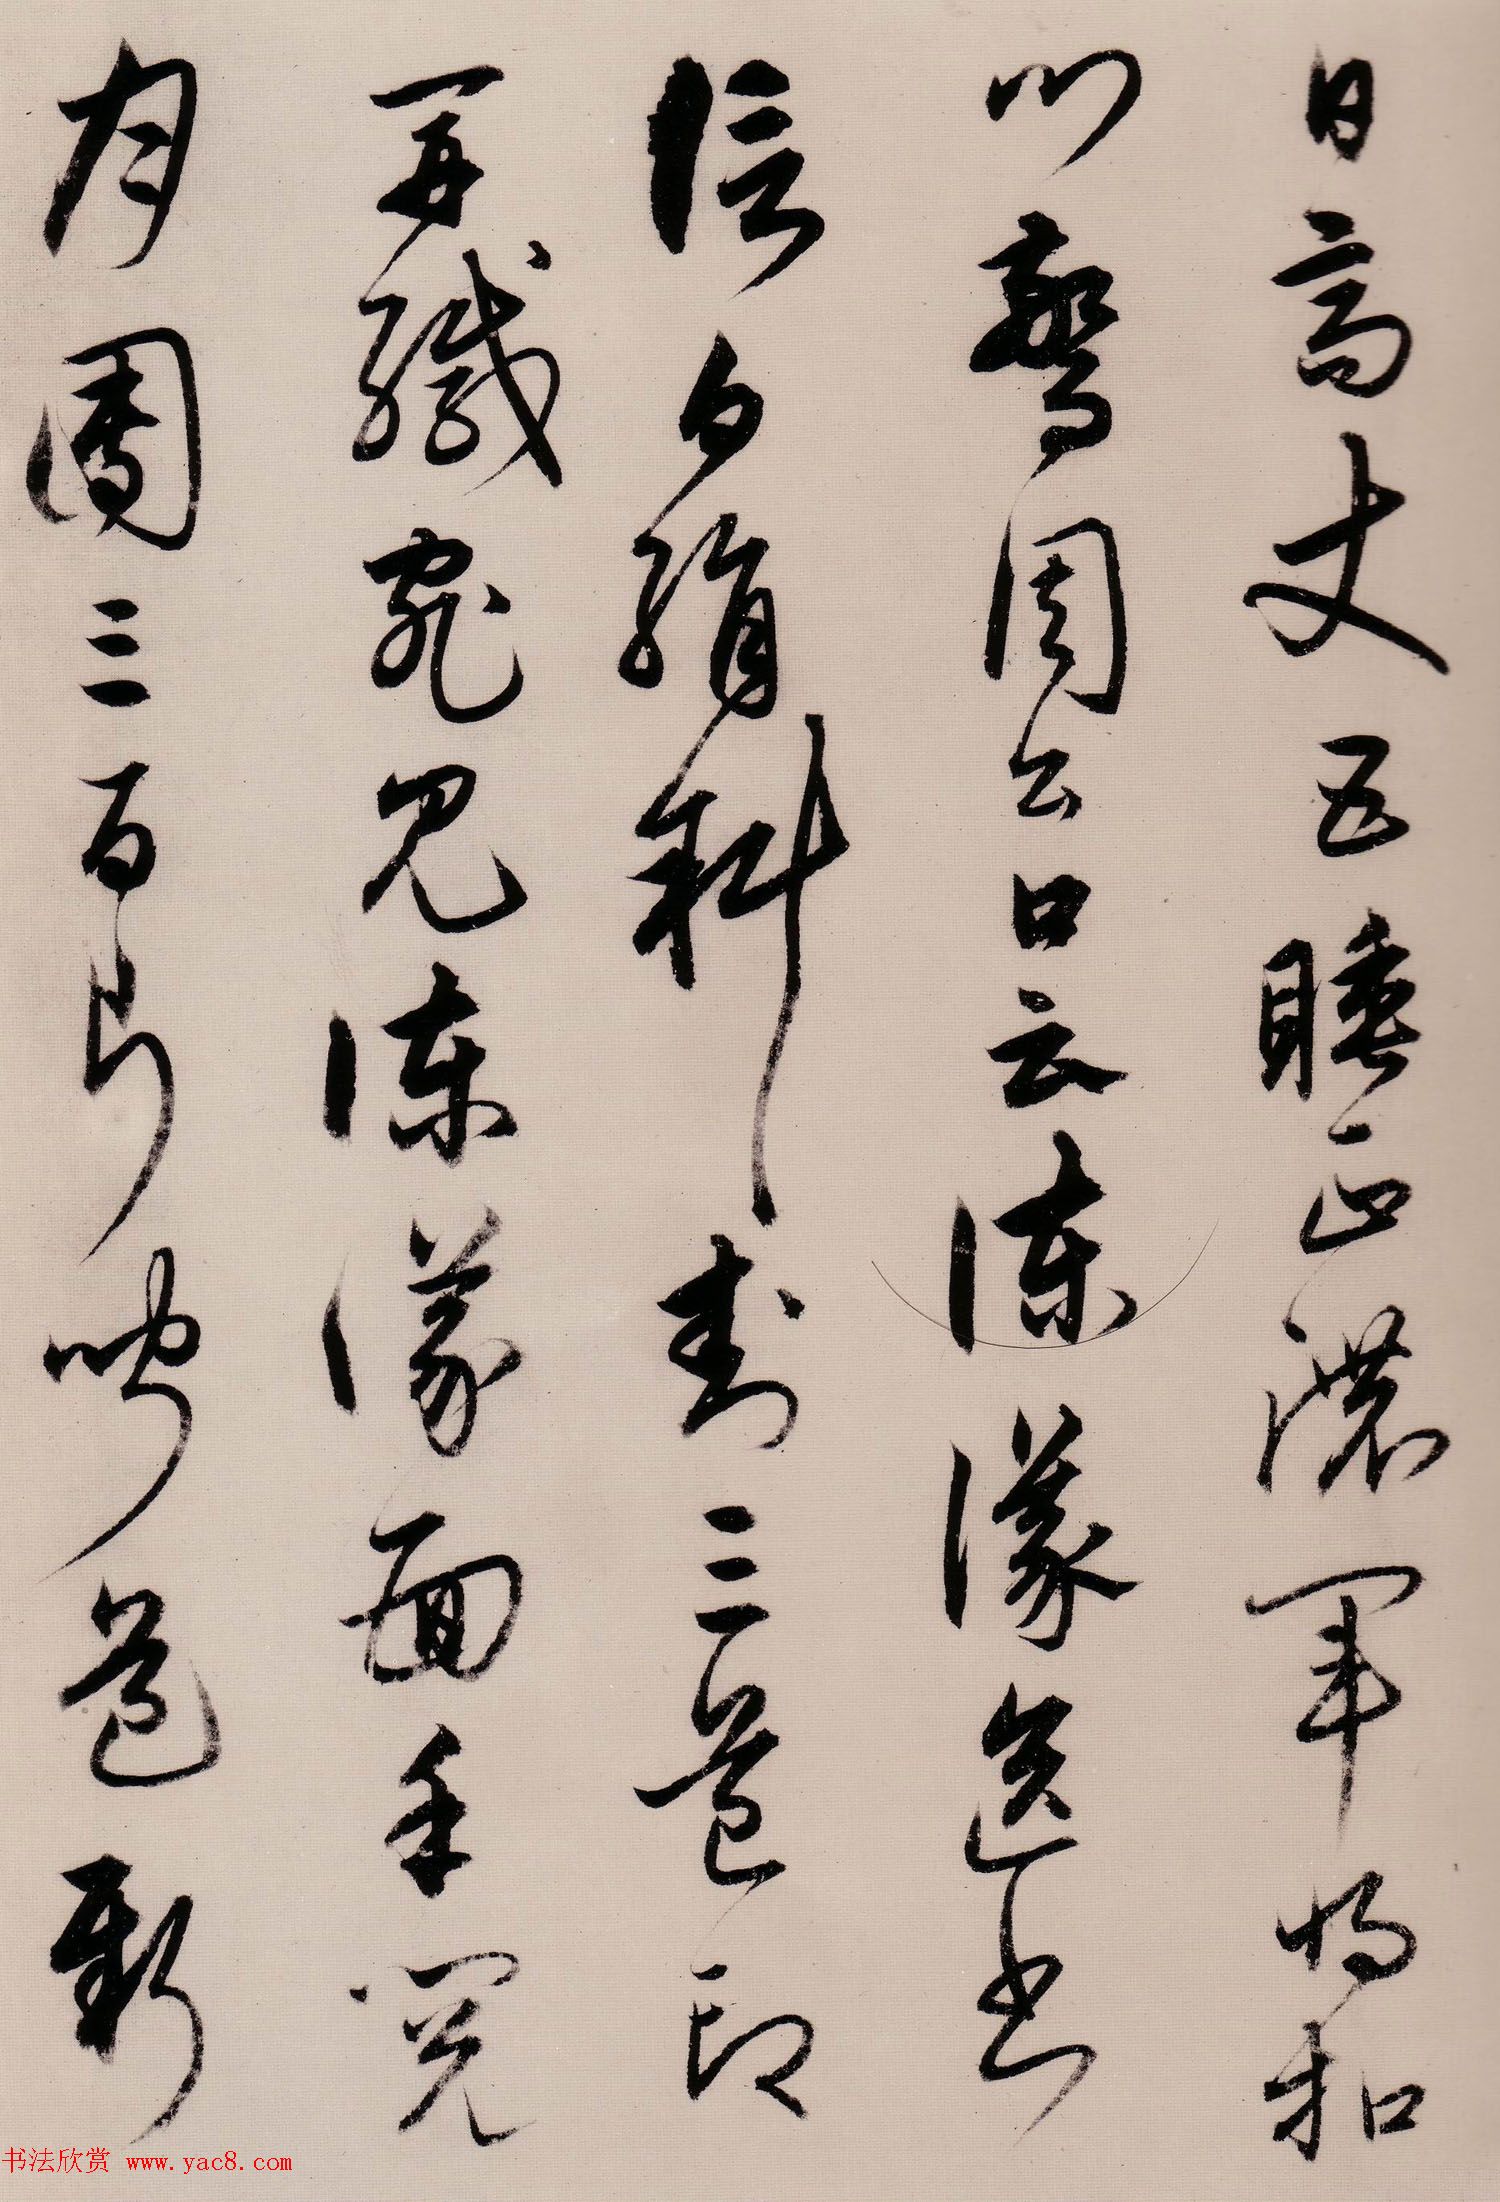 日高丈五睡正濃軍將扣
門驚周公口云諫議送書
信白絹斜封三道印
開緘宛見諫議面手閱
月團三百片聞道新
书法欣赏 www.yac8.com